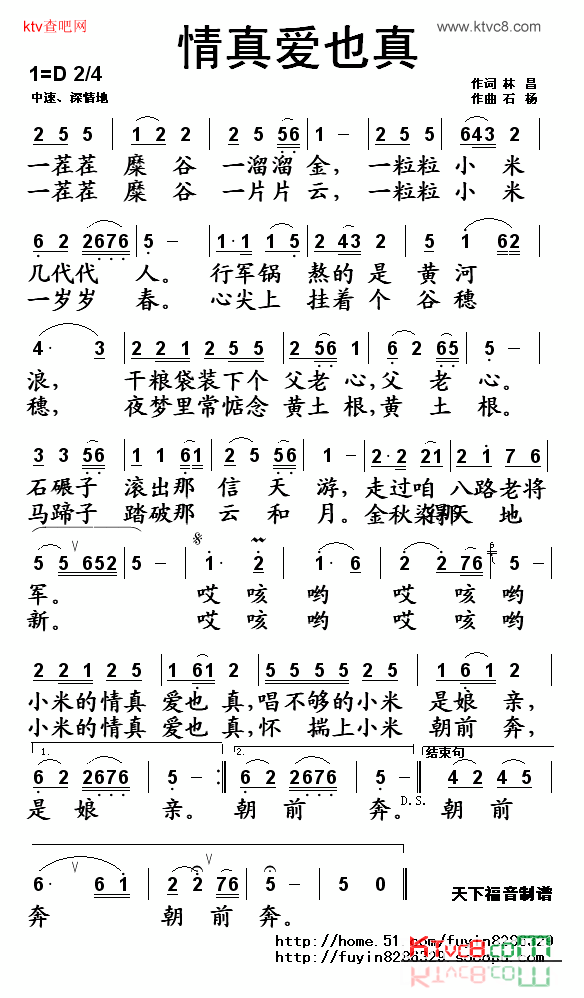 ktv查吧网
www.ktvc8.com
情真爱也真
1=D 2/4
中速、深情地
作词 林 昌
作曲 石 杨
2 5 5 1 2 2 2 2 5 56 2 5 5 643 2
一茬茬 糜 谷 一溜溜 金, 一粒粒 小 米
一茬茬 糜 谷 一片片 云, 一粒粒 小 米
6 2 2676 5 - 1·1 1 5 2 43 2 5 1 62
几代代 人。 行军锅 熬的 是 黄 河
一岁岁 春。 心尖上 挂着 个 谷 穗
4· 3 2 2 1 2 5 5 2 56 1 6 2 65 5 -
浪, 干粮袋装下个 父老 心,父 老 心。
穗, 夜梦里常惦念 黄土 根,黄 土 根。
3 3 56 1 1 61 2 5 56 1 - 2·2 21 2 1 7 6
石碾子 滚出那 信 天 游, 走过咱 八路老将
马蹄子 踏破那 云 和 月。金秋染那 天 地
5 5 652 5 - 1· 2 1· 6 2 2 76 5 -
军。 哎 咳 哟 哎 咳 哟
新。 哎 咳 哟 哎 咳 哟
2 2 1 2 5 1 61 2 5 5 5 5 2 2 1 6 1 2
小米的情真 爱也 真,唱不够的小米 是娘 亲,
小米的情真 爱也 真,怀 揣上小米 朝前 奔,
1. 2. 结束句
6 2 2676 5 - 6 2 2676 5 - 4 2 4 5
D.S.
是 娘 亲。 朝 前 奔。 朝 前
6· 6 1 2 2 76 5 - 5 0
奔 朝 前 奔。
天下福音制谱
http://home.51.com/fuyin8286329
Ktvc8.com